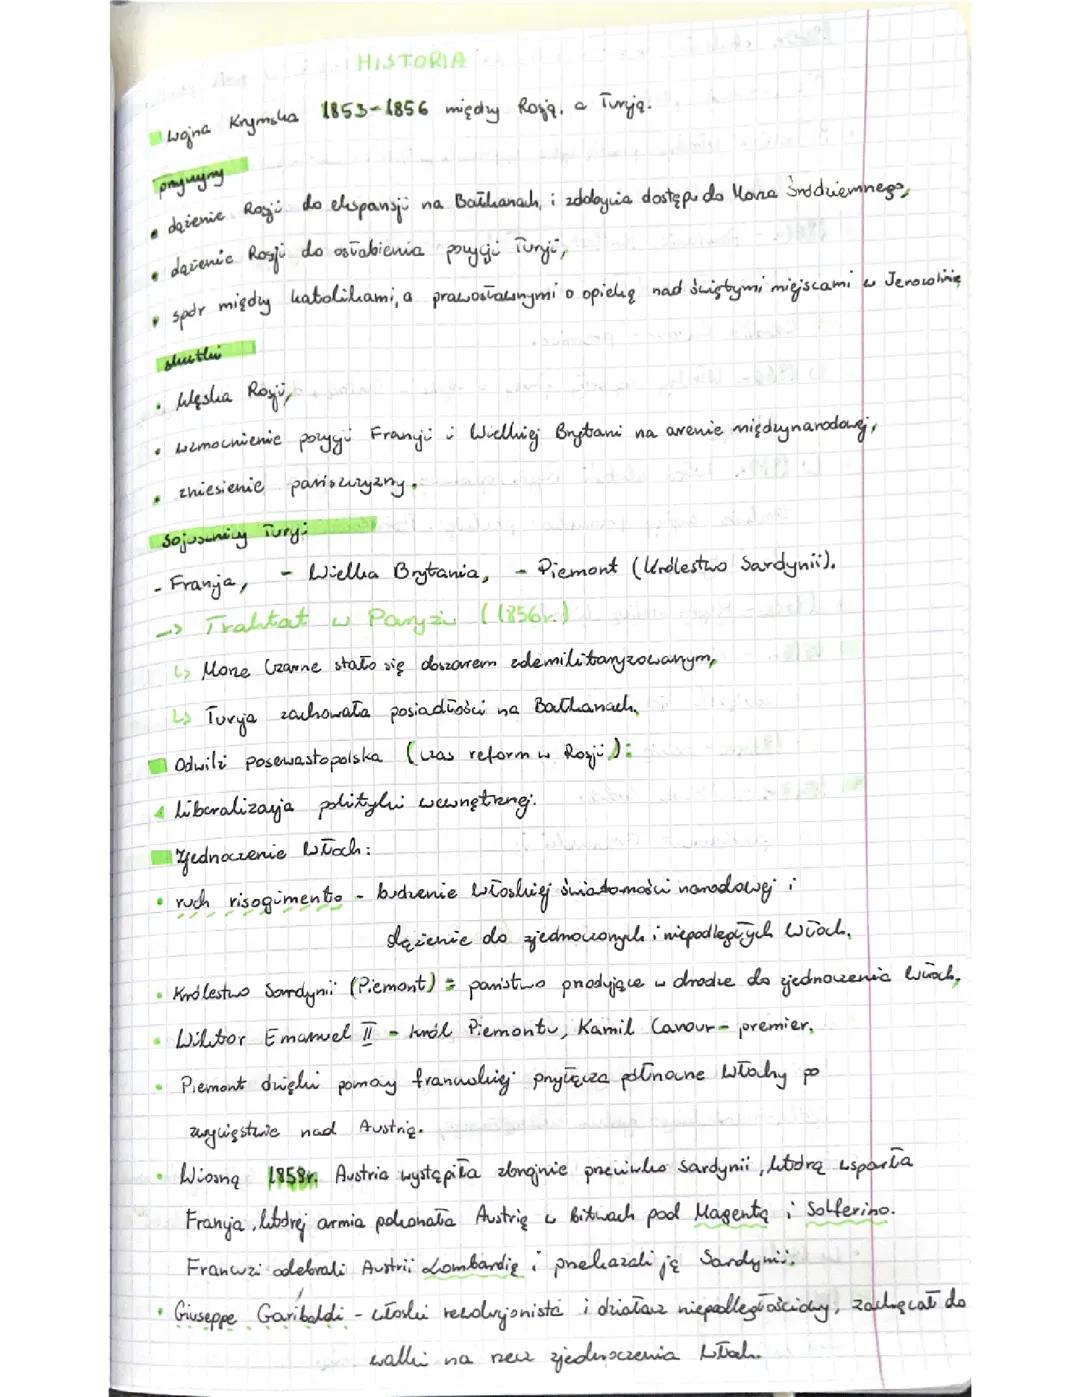 HISTORIA
Wojna Krymska 1853-1856 między Rosją, a Turcją.
przyczyny
• dążenie Rosji do ekspansji na Bałkanach, i zdobycia dostępu do Morza Śródziemnego,
• dążenie Rosji do osłabienia pozycji Turcji,
• spór między katolikami, a prawosławnymi o opiekę nad świętymi miejscami w Jerozolimie
skutki
• klęska Rosji,
• wzmocnienie pozycji Francji i Wielkiej Brytani na arenie międzynarodowej,
• zniesienie pańszczyzny.
Sojusznicy Turcji
- Francja, - Wielka Brytania, - Piemont (Królestwo Sardynii).
-> Traktat w Paryżu (1856r.)
↳ Morze Czarne stało się obszarem zdemilitaryzowanym,
↳ Turcja zachowała posiadłości na Bałkanach.
Odwilż posewastopolska (czas reform w Rosji):
• liberalizacja polityki wewnętrznej.
Zjednoczenie Włoch:
• ruch risogimento - budzenie włoskiej świadomości narodowej i
dążenie do zjednoczonych i niepodległych Włoch.
• Królestwo Sardynii (Piemont) = państwo przodujące w drodze do zjednoczenia Włoch.
• Wiktor Emanuel II - król Piemontu, Kamil Cavour - premier.
• Piemont dzięki pomocy francuskiej przyłącza północne Włochy po
zwycięstwie nad Austrią.
• Wiosną 1859r. Austria wystąpiła zbrojnie przeciwko Sardynii, którą wsparła
Francja, której armia pokonała Austrię w bitwach pod Magentą i Solferino.
Francuzi odebrali Austrii Lombardię i przekazali ją Sardynii.
• Giuseppe Garibaldi - włoski rewolucjonista i działacz niepodległościowy, zachęcał do
walki na rzecz zjednoczenia Włoch.